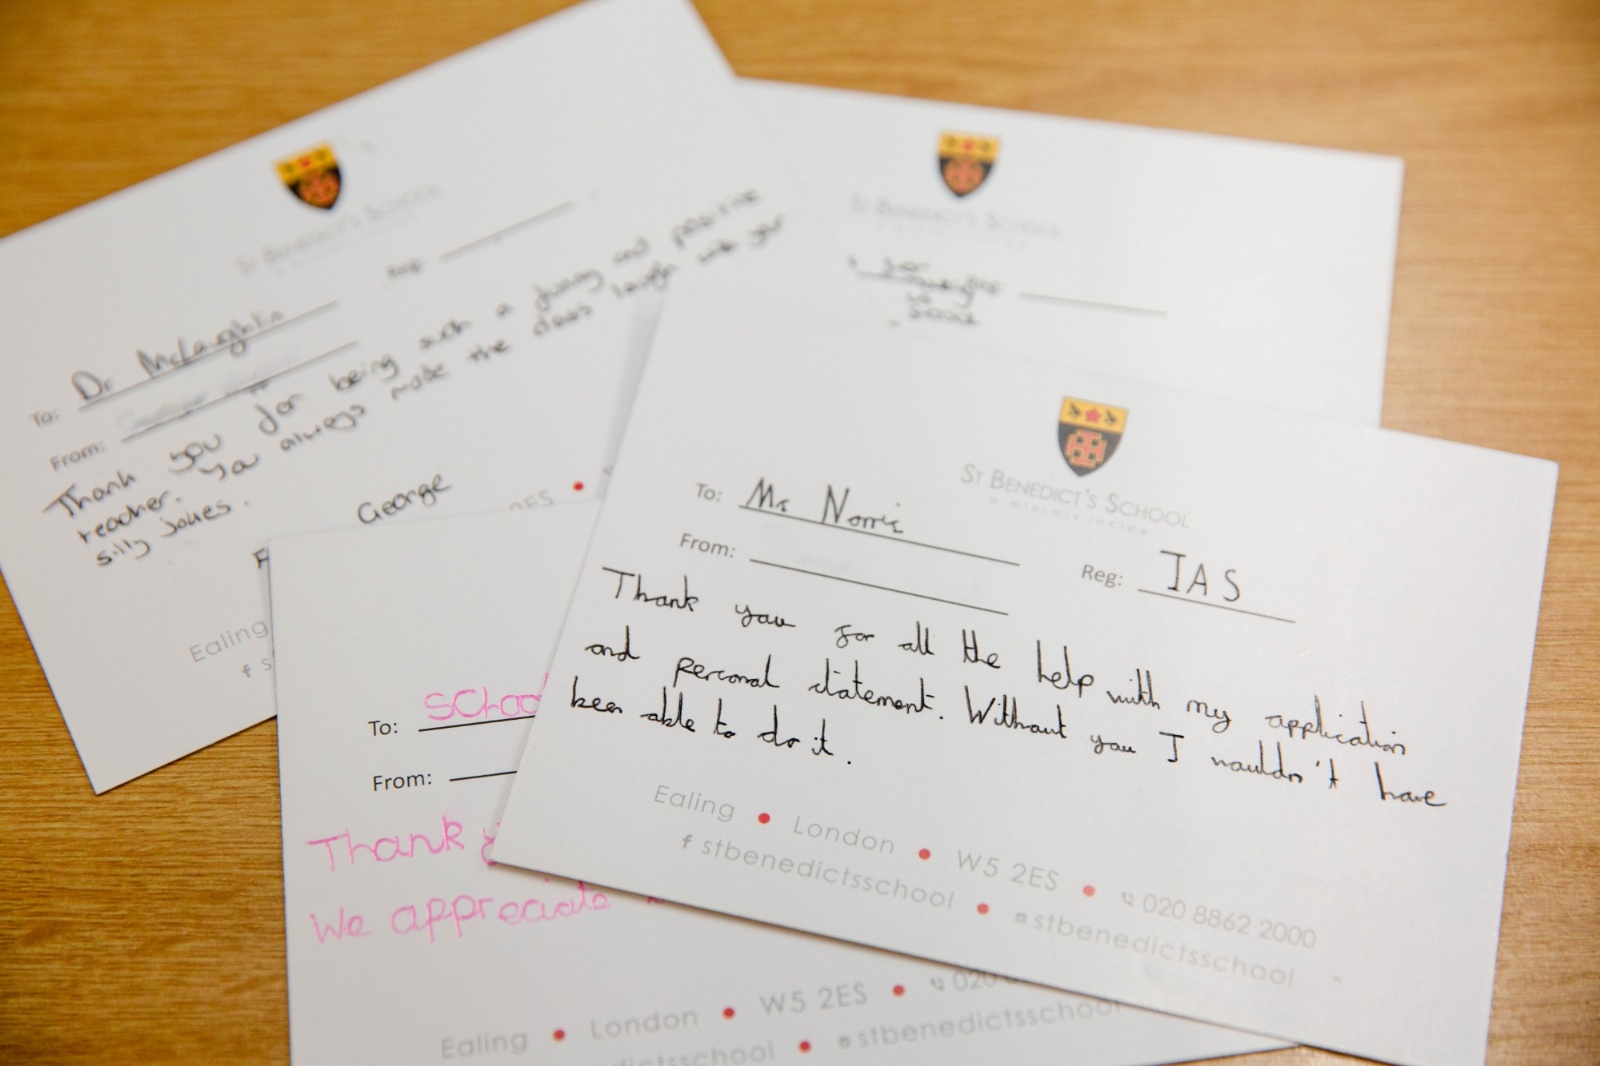 St Benedict's School
To: Dr McLaughlin
Reg:
From:
Thank you for being such a funny and positive
teacher. You always make the class laugh with your
silly jokes.
George
Ealing
St Benedict's School
St Benedict's School
a minimis incipe
To: Mr Norris
Reg: JAS
From:
Thank you for all the help with my application
and personal statement. Without you I wouldn't have
been able to do it.
Ealing • London • W5 2ES • 020 8862 2000
stbenedictsschool • stbenedictsschool
To: School
From:
Thank
We appreciate
Ealing • London • W5 2ES • 020
stbenedictsschool